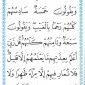 وَيَقُولُونَ خَمْسَةٌ سَادِسُهُمْ
كَلْبُهُمْ رَجْمًا بِالْغَيْبِ وَيَقُولُونَ
سَبْعَةٌ وَثَامِنُهُمْ كَلْبُهُمْ قُل رَّبِّي
أَعْلَمُ بِعِدَّتِهِم مَّا يَعْلَمُهُمْ إِلَّا قَلِيلٌ
فَلَا تُمَارِ فِيهِمْ إِلَّا مِرَاءً ظَاهِرًا وَلَا